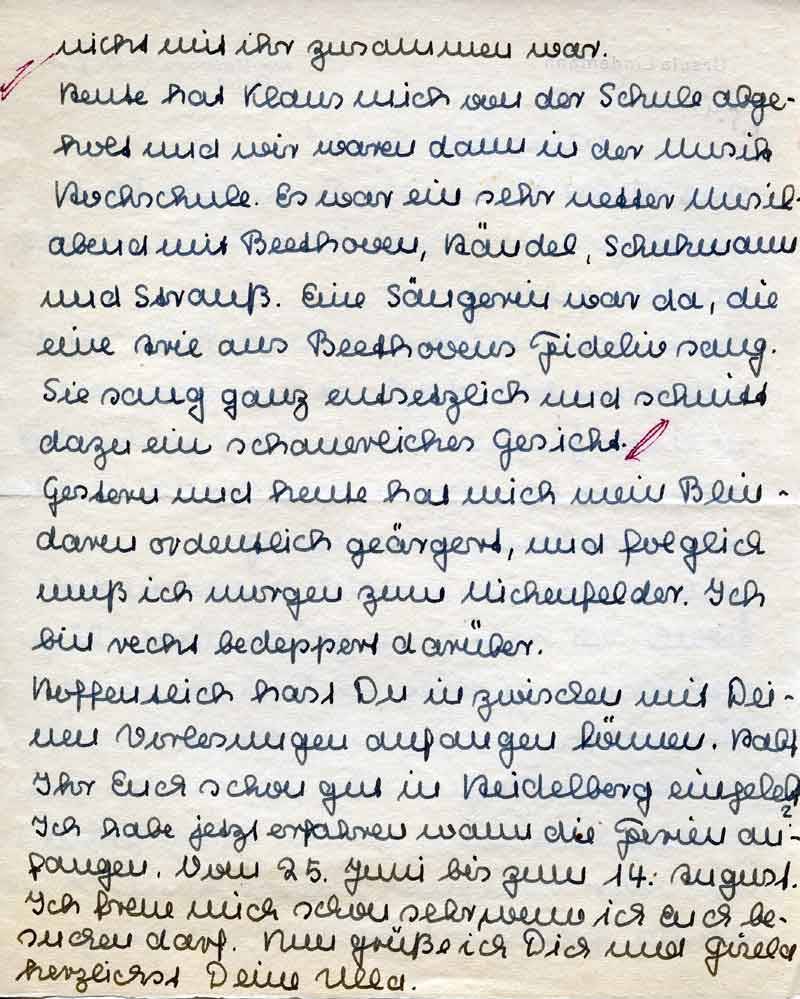 nicht mit ihr zusammen war.
Heute hat Klaus mich von der Schule abge-
holt und wir waren dann in der Musik
Hochschule. Es war ein sehr netter Musik-
abend mit Beethoven, Händel, Schuhmann
und Strauß. Eine Sängerin war da, die
eine Arie aus Beethovens Fidelio sang.
Sie sang ganz entsetzlich und schnitt
dazu ein schauerliches Gesicht.
Gestern und heute hat mich mein Blin-
daren ordentlich geärgert, und folglich
muß ich morgen zum Michenfelder. Ich
bin recht bedeppert darüber.
Hoffentlich hast Du inzwischen mit Dei-
nen Vorlesungen anfangen können. Habt
Ihr Euch schon gut in Heidelberg eingelebt?
Ich habe jetzt erfahren wann die Ferien an-
fangen. Vom 25. Juni bis zum 14. August.
Ich freue mich schon sehr wenn ich Euch be-
suchen darf. Nun grüße ich Dich und Gisela
herzlichst Deine Ulla.